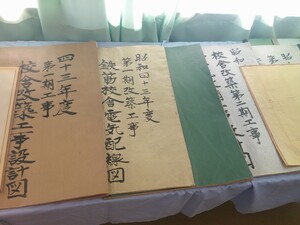 四十三年度
第二期工事
校舎改築工事設計図
昭和四十三年度
第二期改築工事
鉄筋校舎電気配線図
昭和
校舎改築第二期工事